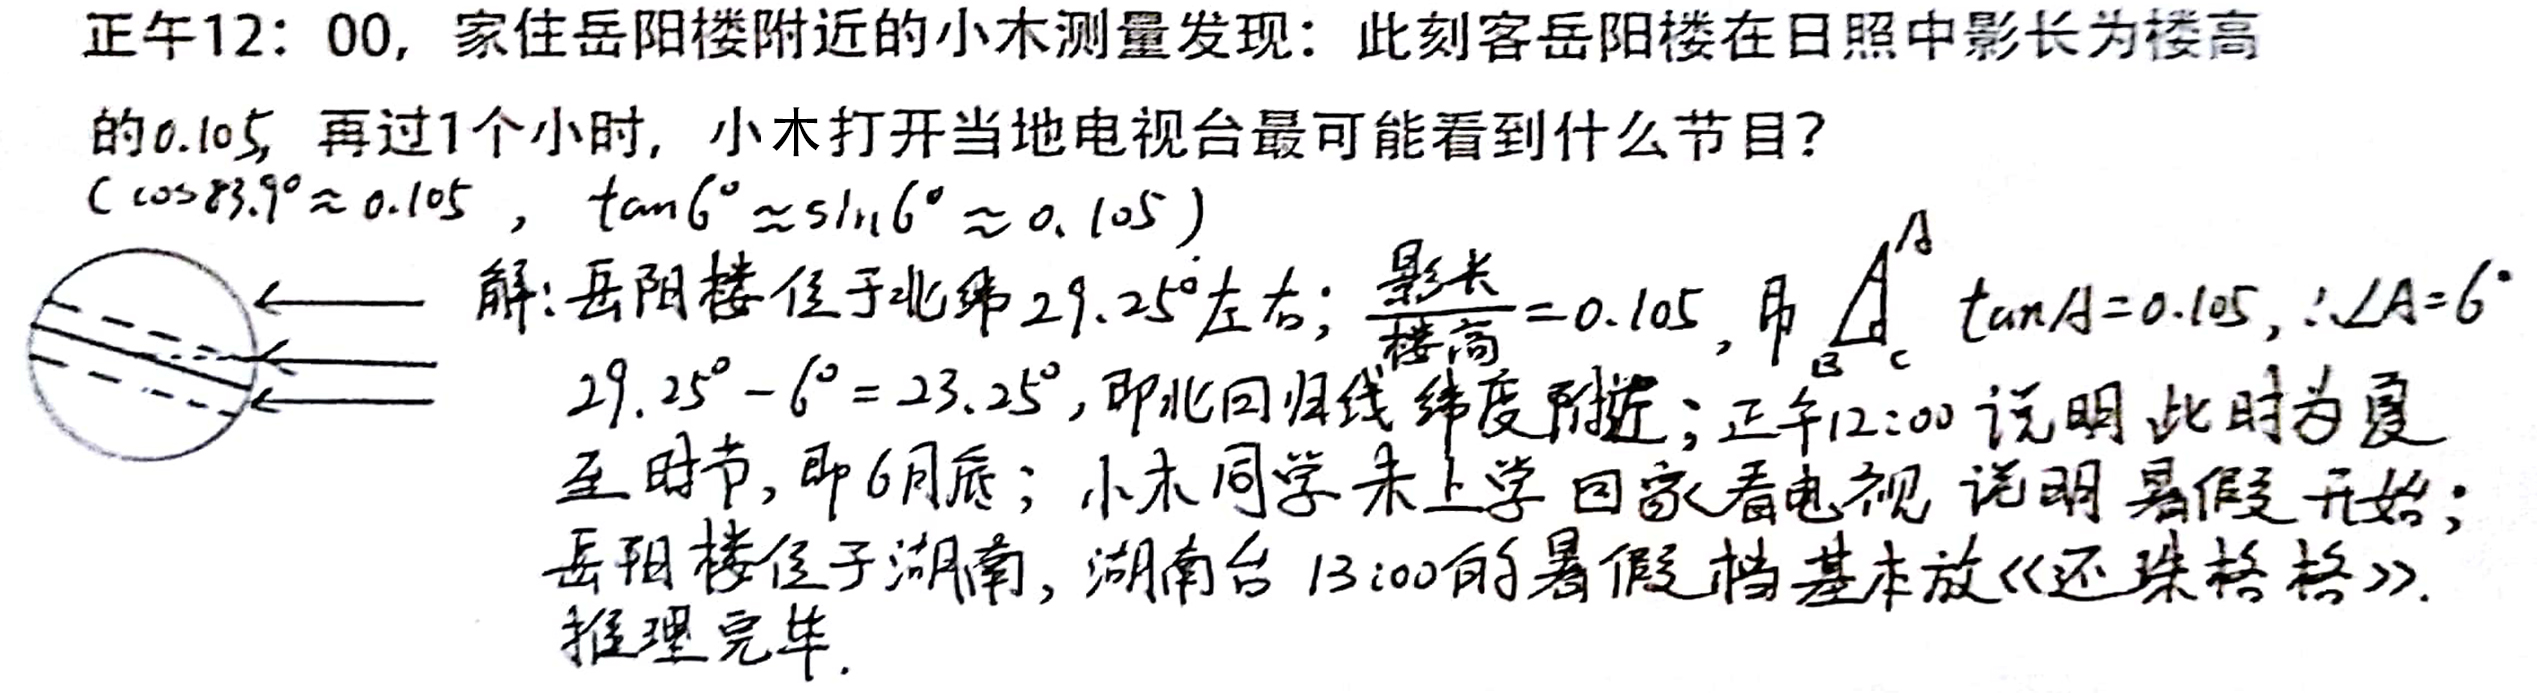 正午12：00，家住岳阳楼附近的小木测量发现：此刻客岳阳楼在日照中影长为楼高
的0.105，再过1个小时，小木打开当地电视台最可能看到什么节目？
(cos83.9°≈0.105，tan6°≈sin6°≈0.105)
解：岳阳楼位于北纬29.25°左右；影长/楼高=0.105，即 A B C tanA=0.105，∴∠A=6°
29.25°-6°=23.25°，即北回归线纬度附近；正午12:00说明此时为夏
至时节，即6月底；小木同学未上学回家看电视说明暑假开始；
岳阳楼位于湖南，湖南台13:00的暑假档基本放《还珠格格》.
推理完毕.